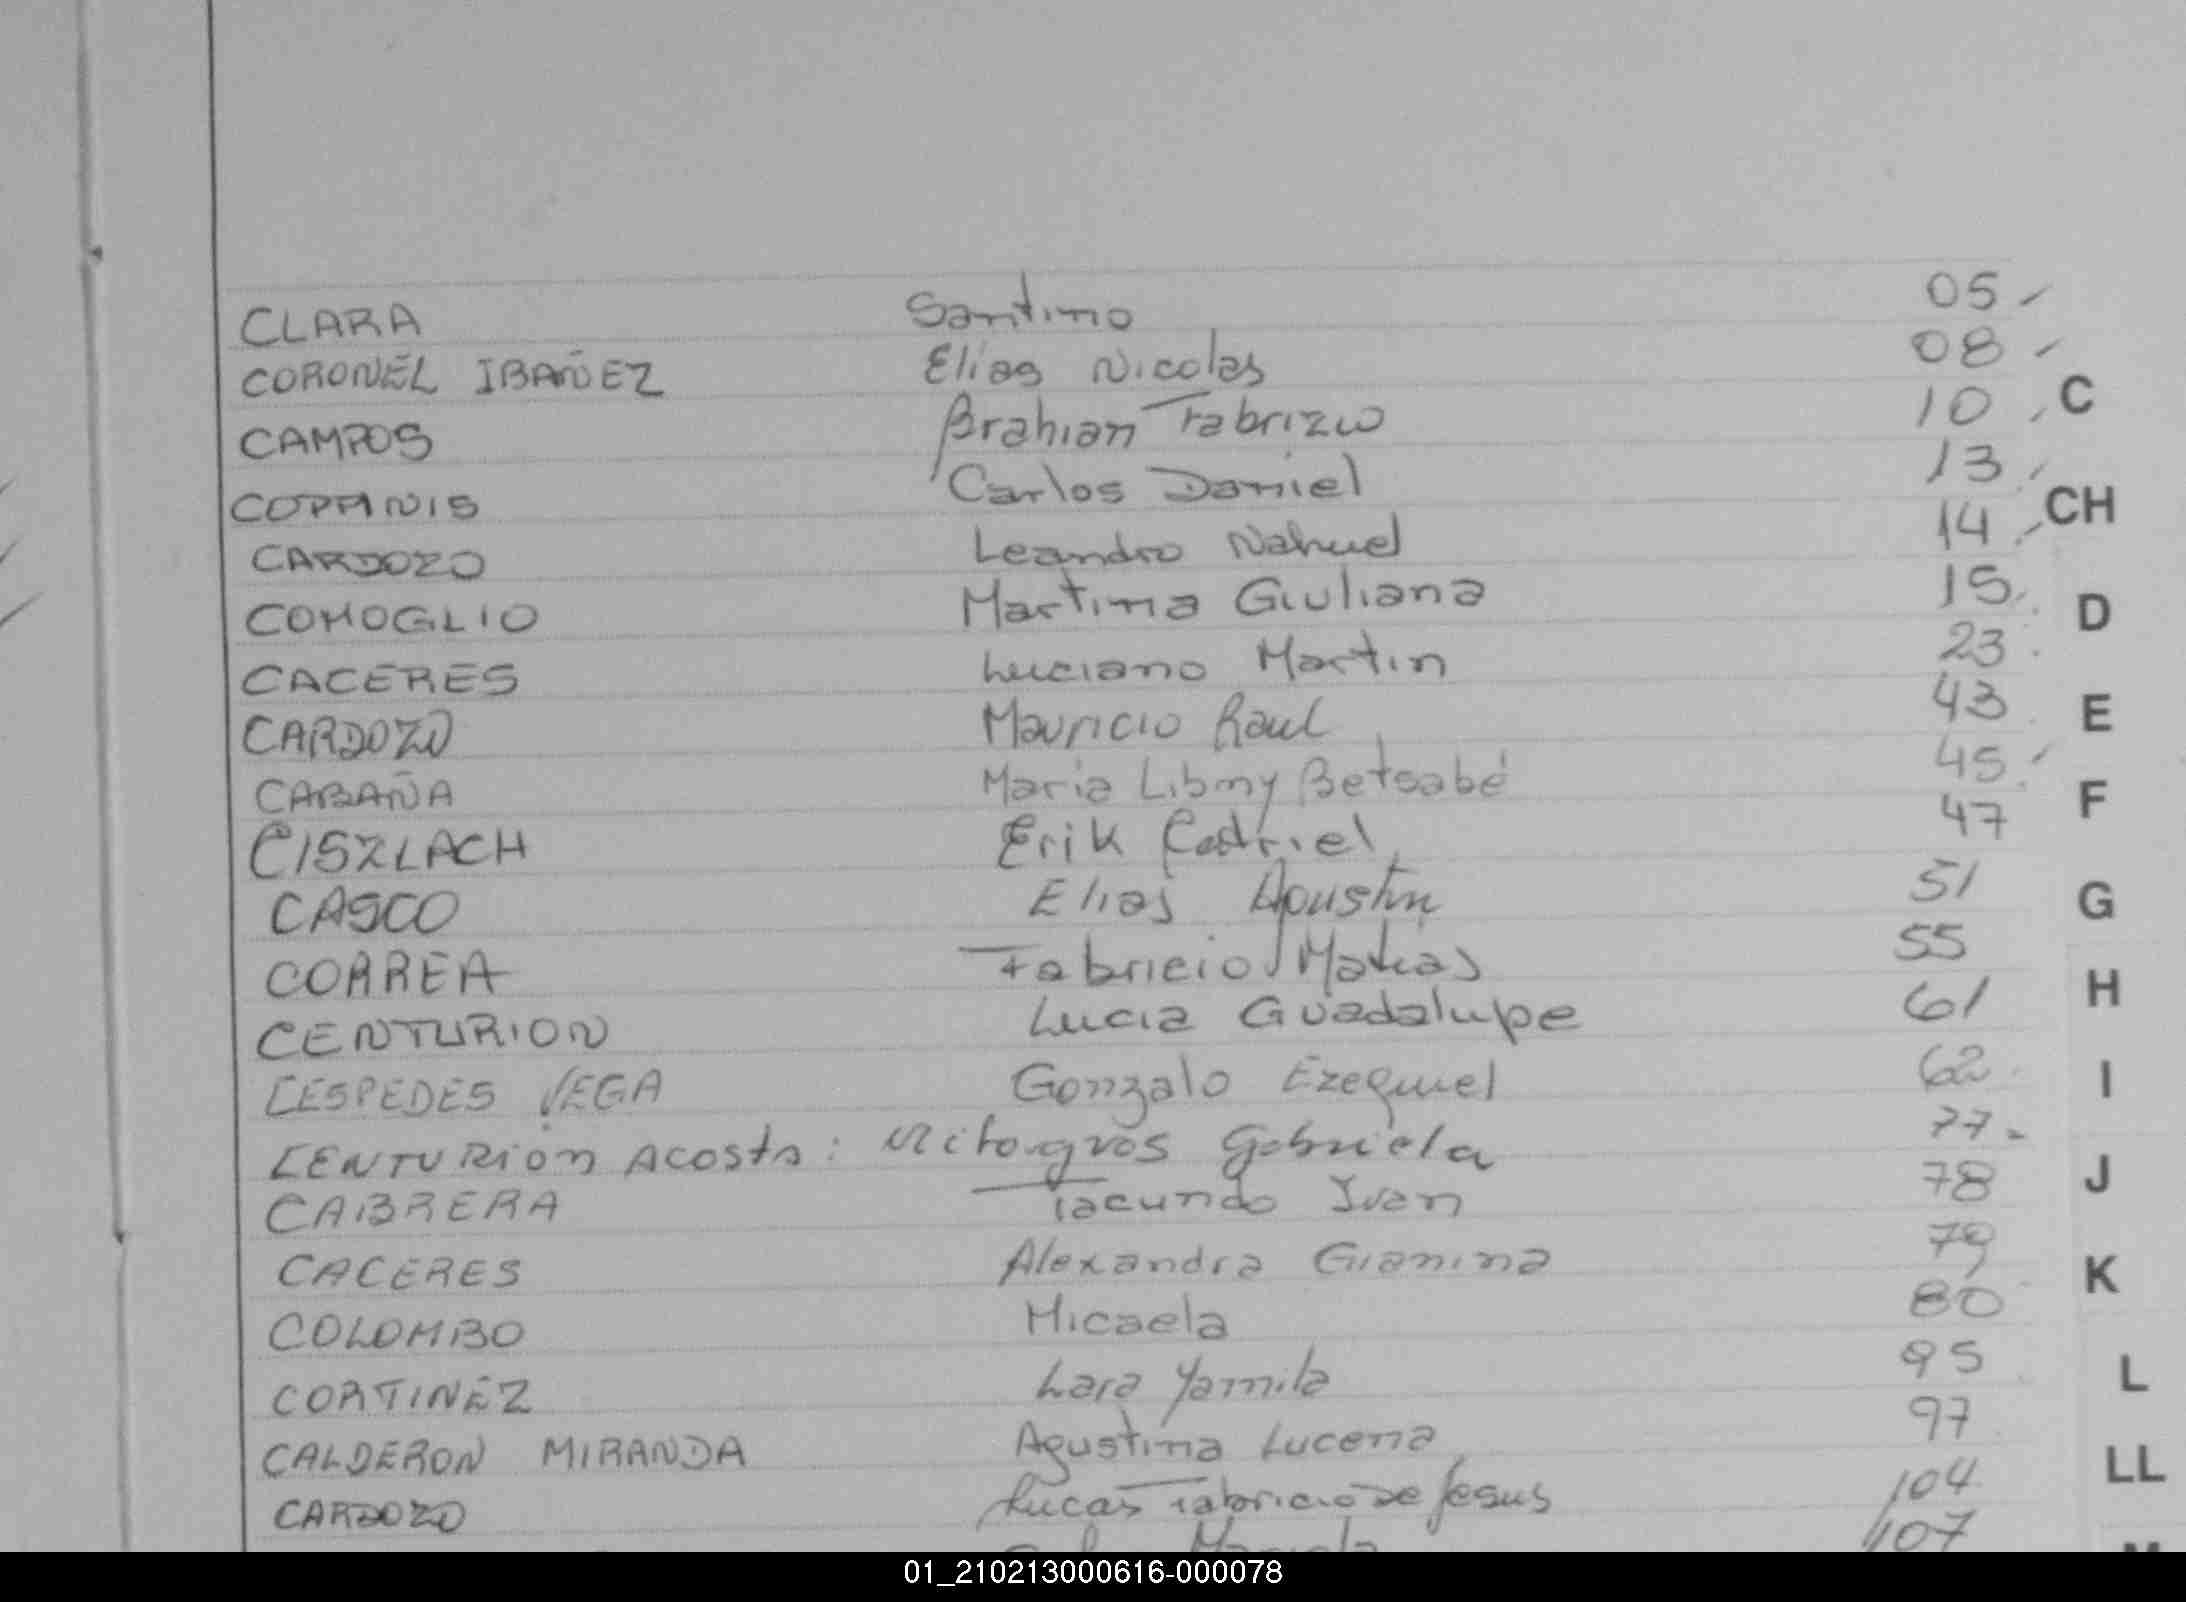 CLARA Santino 05
CORONEL IBAÑEZ Elias Nicolas 08
CAMPOS Brahian Fabrizio 10 C
Carlos Daniel 13
CARDOZO Leandro Nahuel 14 CH
COMOGLIO Martina Giuliana 15 D
CACERES Luciano Martin 23
CARDOZO Mauricio Raul 43 E
CABAÑA Maria Betsabé 45
CISZLACH Erik 47 F
CASCO Elias Agustin 51 G
CORREA Fabricio Matias 55
CENTURION Lucia Guadalupe 61 H
CESPEDES VEGA Gonzalo Ezequiel 62 I
CENTURIÓN ACOSTA: Milagros Gabriela 77
CABRERA Facundo Ivan 78 J
CACERES Alexandra Gianina 79
COLOMBO Micaela 80 K
CORTINEZ Lara Yamila 95 L
CALDERON MIRANDA Agustina Lucena 97
CARDOZO Lucas Fabricio De Jesus 104 LL
107
01_210213000616-000078